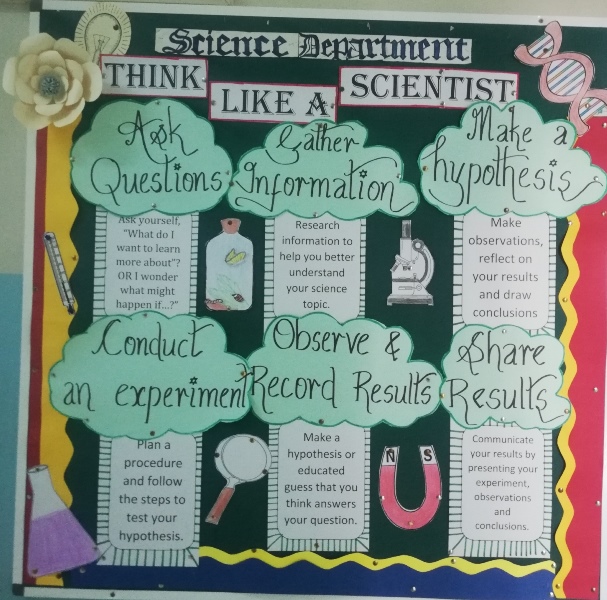 Science Department
THINK
LIKE A
SCIENTIST
Ask
Questions
Gather
Information
Make a
hypothesis
Ask yourself,
"What do I
want to learn
more about"?
OR I wonder
what might
happen if...?"
Research
information to
help you better
understand
your science
topic.
Make
observations,
reflect on
your results
and draw
conclusions
Conduct
an experiment
Observe &
Record Results
Share
Results
Plan a
procedure
and follow
the steps to
test your
hypothesis.
Make a
hypothesis or
educated
guess that you
think answers
your question.
N S
Communicate
your results by
presenting your
experiment,
observations
and
conclusions.